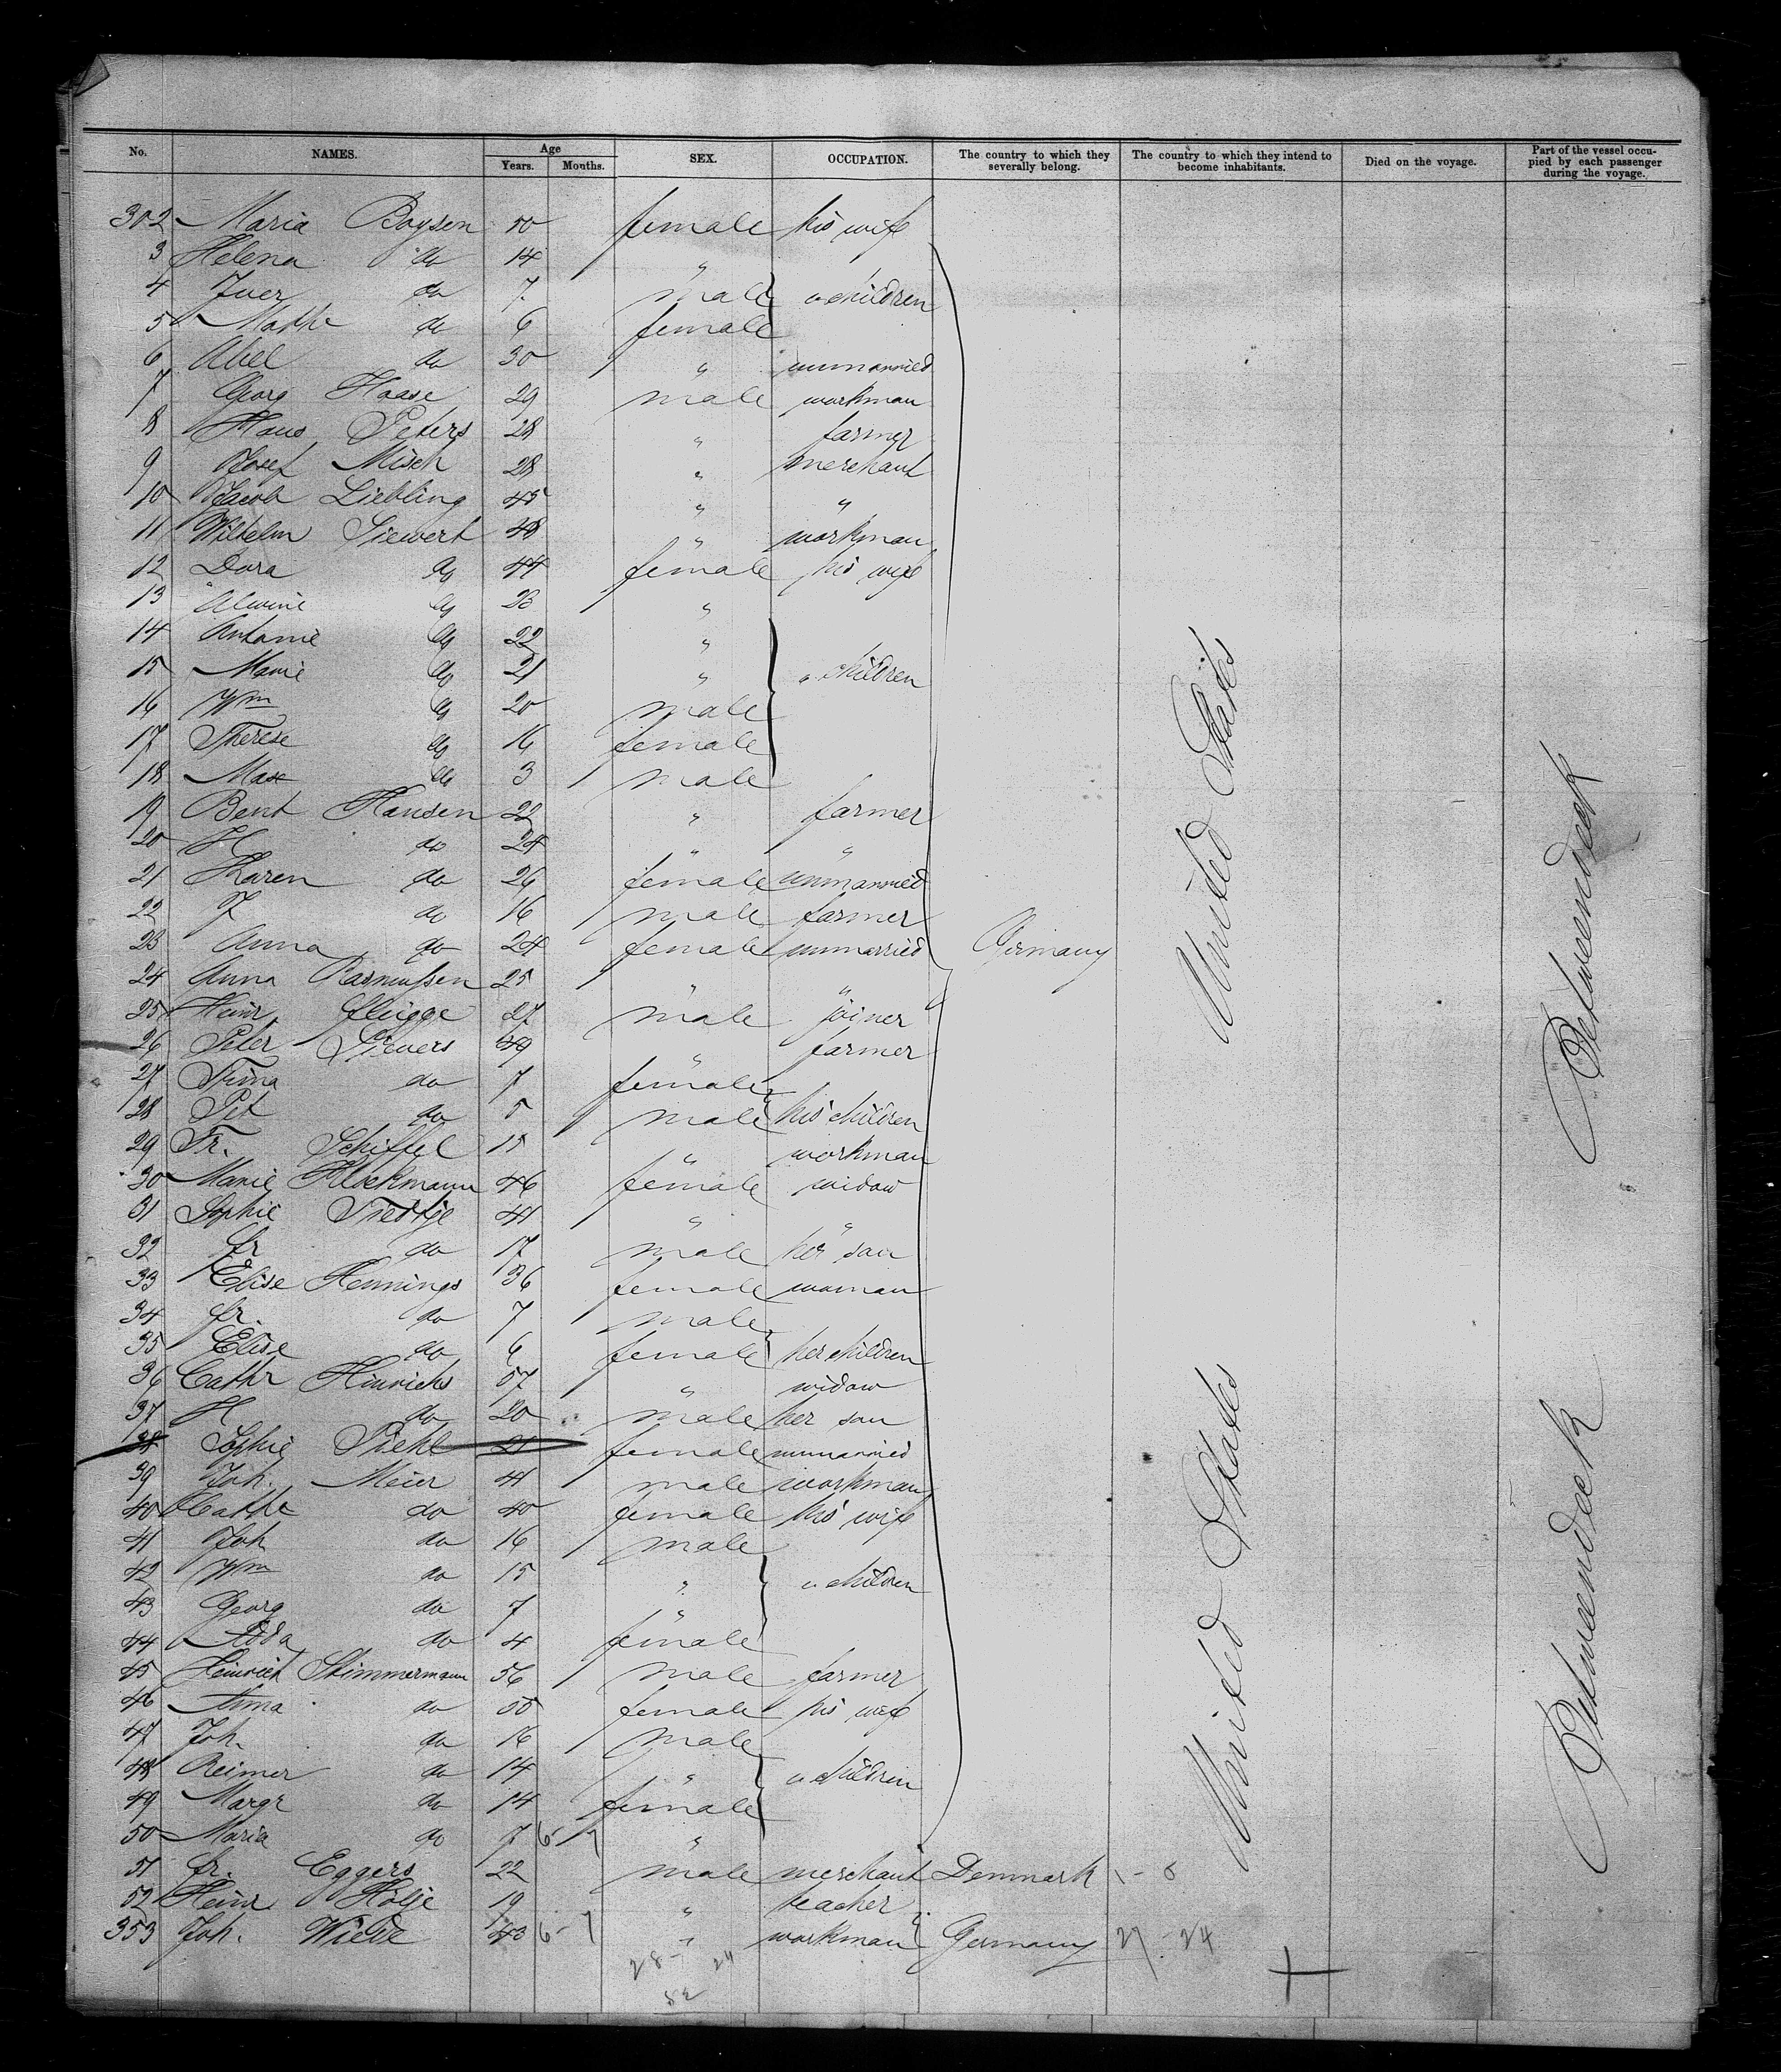 No. NAMES. Age Years. Months. SEX. OCCUPATION. The country to which they severally belong. The country to which they intend to become inhabitants. Died on the voyage. Part of the vessel occupied by each passenger during the voyage.
302 Maria Boysen 50 female his wife
3 Helena do 14 "
4 Iver do 7 male " children
5 Mathe do 6 female
6 Abel do 30 " unmarried
7 Georg Haase 29 male workman
8 Hans Peters 28 " farmer
9 Josef Misch 28 " merchant
10 Jacob Liebling 45 " "
11 Wilhelm Siewert 48 " workman
12 Dora do 44 female his wife
13 Alwine do 23 "
14 Antonie do 22 "
15 Marie do 21 " " children
16 Wm do 20 male
17 Therese do 16 female
18 Max do 3 male
19 Bent Hansen 22 " farmer
20 H do 24 " "
21 Karen do 26 female unmarried
22 J do 16 male farmer
23 Anna do 24 female unmarried Germany United States Betweendeck
24 Anna Rasmussen 25 " "
25 Heinr. Flügge 27 male joiner
26 Peter Sievers 49 " farmer
27 Trina do 7 female
28 Pet do 5 male his children
29 Fr. Schiffel 15 " workman
30 Marie Klockmann 46 female widow
31 Sophie Tiedtje 41 " "
32 Fr do 17 male her son
33 Elise Hennings 36 female woman
34 Fr. do 7 male
35 Elise do 6 female her children
36 Cathr Hinrichs 57 " widow
37 H do 20 male her son
38 Sophie Piehl 21 female unmarried
39 Joh. Meier 41 male workman
40 Cathe do 40 female his wife
41 Joh do 16 male
42 Wm do 15 " " children
43 Georg do 7 "
44 do 4 female
45 Heinrich Stimmermann 56 male farmer United States Betweendeck
46 Anna do 50 female his wife
47 Joh. do 16 male
48 Reimer do 14 " " children
49 Margr do 14 female
50 Maria do 7 "
51 Fr. Eggers 22 male merchant Denmark
52 Heinr. Hölje 19 " teacher
353 Joh. Wiede 43 " workman Germany 27 - 24
28 - 24